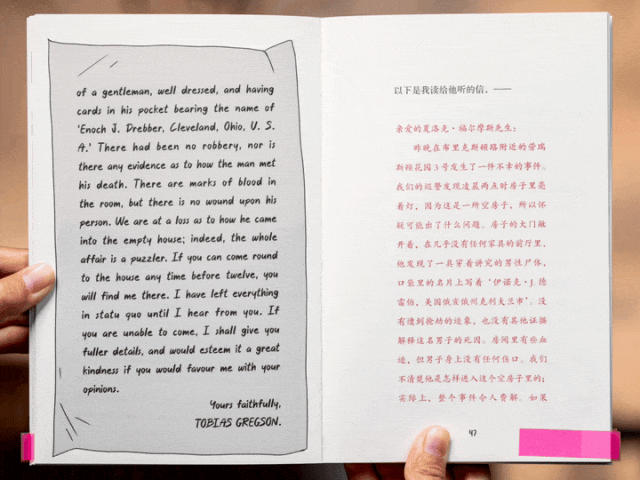 of a gentleman, well dressed, and having
cards in his pocket bearing the name of
'Enoch J. Drebber, Cleveland, Ohio, U. S.
A.' There had been no robbery, nor is
there any evidence as to how the man met
his death. There are marks of blood in
the room, but there is no wound upon his
person. We are at a loss as to how he came
into the empty house; indeed, the whole
affair is a puzzler. If you can come round
to the house any time before twelve, you
will find me there. I have left everything
in statu quo until I hear from you. If
you are unable to come, I shall give you
fuller details, and would esteem it a great
kindness if you would favour me with your
opinions.
Yours faithfully,
TOBIAS GREGSON.
以下是我读给他听的信。——
亲爱的夏洛克·福尔摩斯先生：
昨晚在布里克斯顿路附近的劳瑞
斯顿花园3号发生了一件不幸的事件。
我们的巡警发现凌晨两点时房子里亮
着灯，因为这是一所空房子，所以怀
疑可能出了什么问题。房子的大门敞
开着，在几乎没有任何家具的前厅里，
他发现了一具穿着讲究的男性尸体，
口袋里的名片上写着‘伊诺克·J. 德
雷伯，美国俄亥俄州克利夫兰市’。没
有遭到抢劫的迹象，也没有其他证据
解释这名男子的死因。房间里有些血
迹，但男子身上没有任何伤口。我们
不清楚他是怎样进入这个空房子里的；
实际上，整个事件令人费解。如果
47